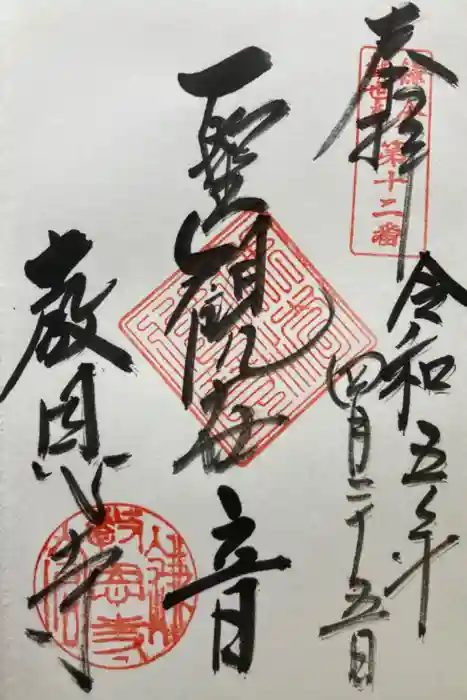 奉拝
鎌倉
観世音
第十二番
令和五年
四月二十五日
聖観世音
教恩寺